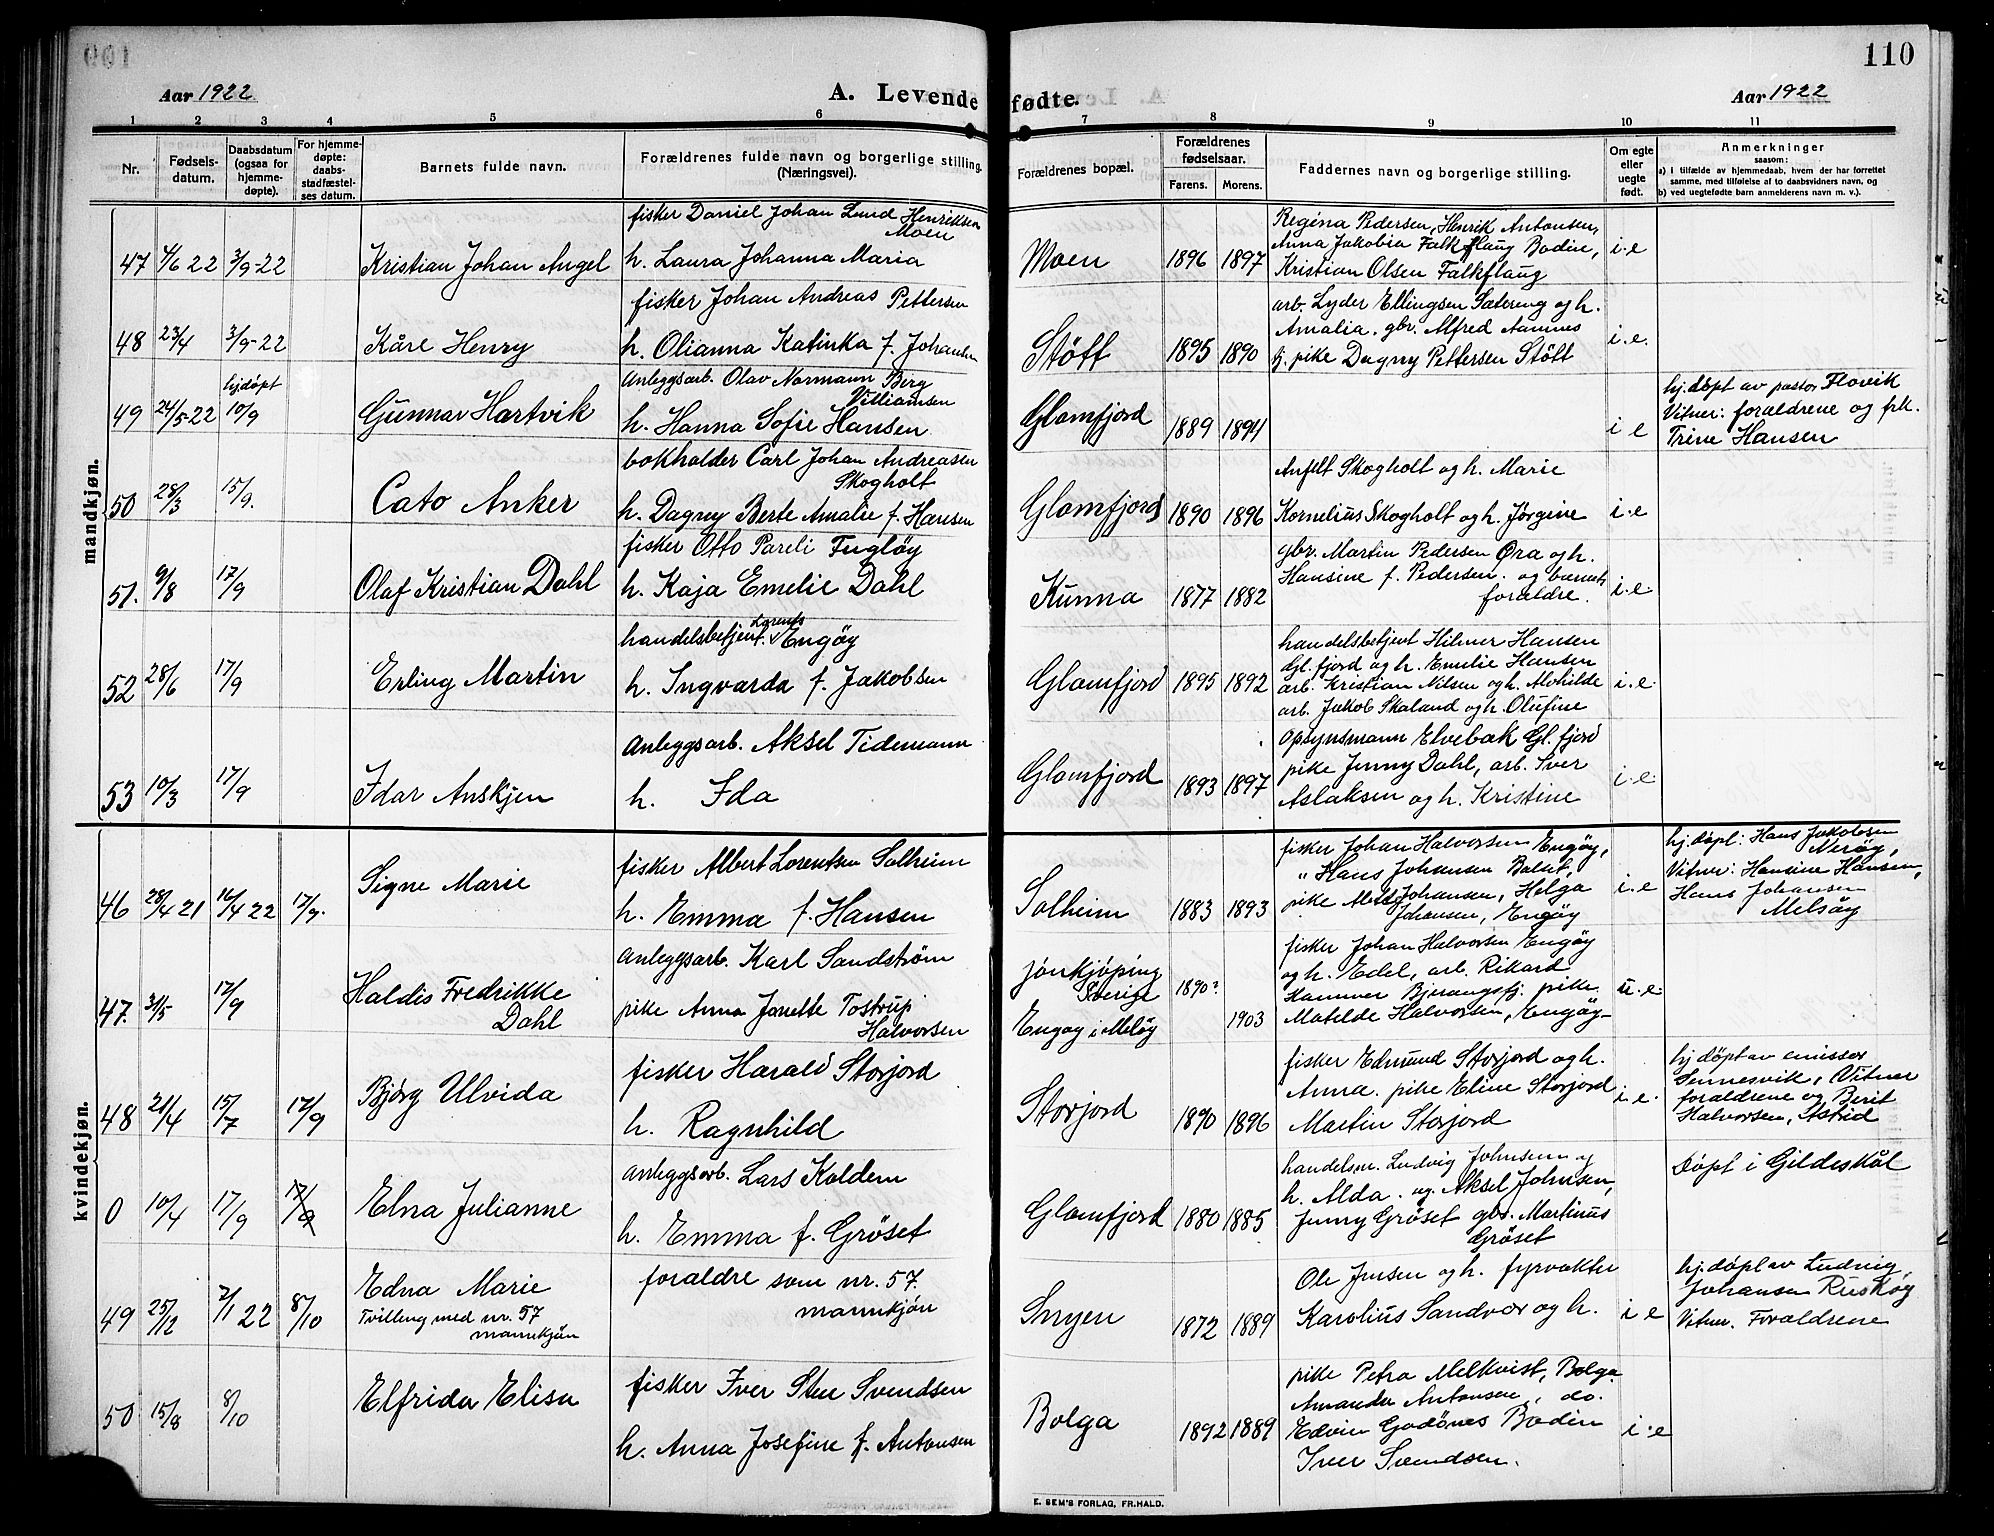 110
Aar 1922
A. Levende fødte.
Aar 1922
1 2 3 4 5 6 7 8 9 10 11
Nr.
Fødsels-
datum.
Daabsdatum
(ogsaa for
hjemme-
døpte).
For hjemme-
døpte:
daabs-
stadfæstel-
ses datum.
Barnets fulde navn.
Forældrenes fulde navn og borgerlige stilling.
(Næringsvei).
Forældrenes bopæl.
Forældrenes
fødselsaar.
Farens. Morens.
Faddernes navn og borgerlige stilling.
Om egte
eller
uegte
født.
Anmerkninger
saasom:
a) i tilfælde av hjemmedaab, hvem der har forrettet
samme, med tilføielse af to daabsvidners navn, og
b) ved uegtefødte barn anmelderens navn m. v.).
mandkjøn.
47 4/6 22 3/9-22 Kristian Johan Angel
fisker Daniel Johan Lund Henriksen
Moen
h. Laura Johanna Maria
Moen 1896 1897
Regina Pedersen, Henrik Antonsen,
Anna Jakobia Falkflaug Bodin,
Kristian Olsen Falkflaug
i-e
48 23/4 3/9-22 Kåre Henry
fisker Johan Andreas Pettersen
h. Olianna Katinka f. Johansen
Støtt 1895 1890
arb. Lyder Ellingsen Sætereng og h.
Amalia. gbr. Alfred Aamnes
tj. pike Dagny Pettersen Støtt
i.e.
49 24/5-22 hjdøpt 10/9 Gunnar Hartvik
Anleggsarb. Olav Normann Berg
Villiamsen
h. Hanna Sofie Hansen
Glomfjord 1889 1894
i e
hj. døpt av pastor Flovik
Vitner: foraldrene og frk.
Trine Hansen
50 28/3 15/9. Cato Anker
bokholder Carl Johan Andreasen
Skogholt
h. Dagny Berte Amalie f. Hansen
Glomfjord 1890 1896
Anfelt Skogholt og h. Marie
Kornelius Skogholt og h. Jørgine
i-e
51. 9/8 17/9 Olaf Kristian Dahl
fisker Otto Pareli Fugløy
h. Kaja Emelie Dahl
Kunna 1877 1882
gbr. Martin Pedersen Øra og h.
Hansine f. Pedersen. og barnets
foraldre.
i-e
52 28/6 17/9 Erling Martin
handelsbetjent. Lorents Engøy
h. Ingvarda f. Jakobsen
Glomfjord 1895 1892
handelsbetjent Hilmer Hansen
Gl. fjord og h. Emelie Hansen
arb. Kristian Nilsen og h. Alvhilde
arb. Jakob Skaland og h. Olufine
i.e.
53 10/3 17/9 Idar Anskjen
Anleggsarb. Aksel Tidemann
h. Ida
Glomfjord 1893 1897
Opsynsmann Elvebak Gl. fjord
pike Jenny Dahl, arb. Iver
Aslaksen og h. Kristine
i-e-
kvindekjøn.
46 28/4 21 16/4 22 17/9. Signe Marie
fisker Albert Lorentsen Solheim
h. Emma f. Hansen
Solheim 1883 1893
fisker Johan Halvorsen Engøy,
" Hans Johansen Bolset,
pike Mette Johansen, Helga
Johansen, Engøy
i-e
hj. døpt: Hans Jakobsen
Nerøy,
Vitner: Hansine Hansen,
Hans Johansen
Meløøy
47. 31/5 17/9 Haldis Fredrikke
Dahl
Anleggsarb. Karl Sandstrøm
pike Anna Janette Tostrup
Halvorsen
Jönkjöping
Sverige
Engøy i Meløy
1890? 1903
fisker Johan Halvorsen Engøy
og h. Edel, arb. Rikard
Hammer Bjerangsfj. pike
Matilde Halvorsen, Engøy-
u-e-
48 21/4 15/7 17/9 Bjørg Ulvida
fisker Harald Storjord
h. Ragnhild
Storjord 1890 1896
fisker Edmund Storjord og h.
Anna. pike Eline Storjord
Martin Storjord
i-e-
hj døpt av emissær
Sennesvik, Vitner
foraldrene og Berit
Halvorsen, Astrid
0 10/4 17/9 17/9 Elna Julianne
anleggsarb. Lars Koldem
h. Emma f. Grøset
Glomfjord 1880 1885
handelsm. Ludvig Johnsen og
h. Alda. og Aksel Johnsen,
Jenny Grøset gbr. Martinus
Grøset
Døpt i Gildeskål
49 25/12 2/1 22 8/10 Edna Marie
Tvilling med nr. 57
mannkjøn
foraldre som nr. 57.
mannkjøn
1872 1889
Ole Jensen og h. fyrvokter
Karolius Sandvær og h.
i-e
hj. døpt av Ludvig
Johansen Riskøy
Vitner. Foraldrene
50 15/8 8/10 Elfrida Elisa
fisker Iver Sten Svendsen
h. Anna Josefine f. Antonsen
Bolga 1892 1889
pike Petra Melkvist, Bolga
Amanda Antonsen, do.
Edvin Godønes Bodin
Iver Svendsen.
i-e
E. SEM'S FORLAG, FR.HALD.